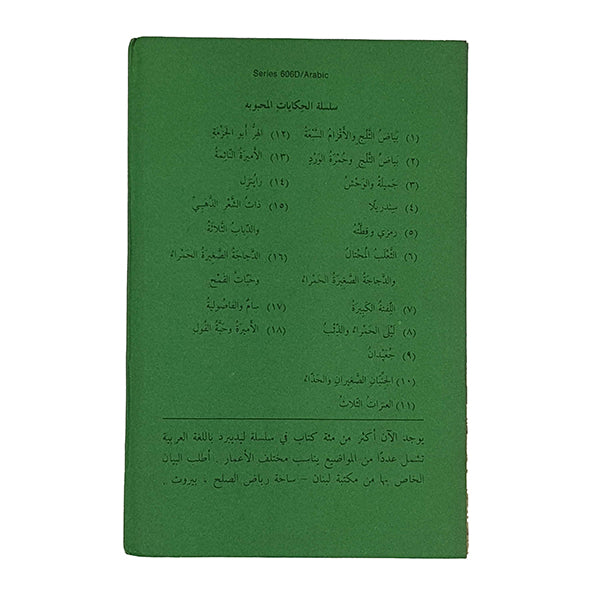 Series 606D/Arabic
سلسلة الحكايات المحبوبه
(١) بَيَاضُ الثَّلجِ والأَقْزَامُ السَّبْعَةُ
(٢) بَيَاضُ الثَّلجِ وحُمْرَةُ الوَرْدِ
(٣) جَمِيلةُ والوَحْشُ
(٤) سِندريلّا
(٥) رمزي وقِطَّتُهُ
(٦) الثَّعْلَبُ المُحْتالُ
والدَّجاجَةُ الصَّغيرَةُ الحَمْراءُ
(٧) اللِّفتةُ الكَبيرَةُ
(٨) لَيْلى الحَمْراءُ والذِّئْبُ
(٩) جُعَيْدانُ
(١٠) الجِنِّيّانِ الصَّغيرانِ والحَذّاءُ
(١١) العَنزاتُ الثَّلاثُ
(١٢) الهِرُّ أَبو الجَزْمَةِ
(١٣) الأَميرَةُ النّائِمَةُ
(١٤) راپُنزِل
(١٥) ذاتُ الشَّعْرِ الذَّهَبِيِّ
والدِّبابُ الثَّلاثَةُ
(١٦) الدَّجاجَةُ الصَّغيرَةُ الحَمْراءُ
وحَبّاتُ القَمْحِ
(١٧) سامٌ والفاصولِيةُ
(١٨) الأَميرَةُ وحَبَّةُ الفُولِ
يوجد الآن أكثر من مئة كتاب في سلسلة ليديبرد باللغة العربية
تشمل عددًا من المواضيع يناسب مختلف الأعمار . أطلب البيان
الخاص بها من مكتبة لبنان – ساحة رياض الصلح ، بيروت .